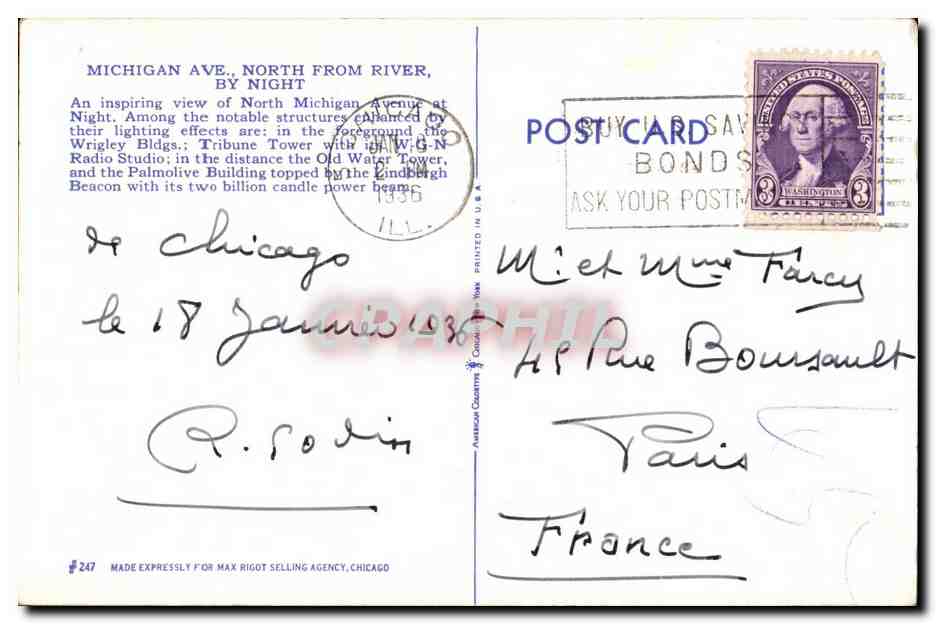 MICHIGAN AVE., NORTH FROM RIVER,
BY NIGHT
An inspiring view of North Michigan Avenue at
Night. Among the notable structures enhanced by
their lighting effects are: in the foreground the
Wrigley Bldgs.; Tribune Tower with its W-G-N
Radio Studio; in the distance the Old Water Tower,
and the Palmolive Building topped by the Lindbergh
Beacon with its two billion candle power beam.
CHICAGO
JAN
2 PM
1936
ILL.
de Chicago
le 18 Janvier 1936
R. Godin
#247 MADE EXPRESSLY FOR MAX RIGOT SELLING AGENCY, CHICAGO
AMERICAN COLORTYPE CHICAGO NEW YORK PRINTED IN U.S.A
POST CARD
BUY U.S. SAV
BONDS
ASK YOUR POSTM
UNITED STATES POSTAGE
3 WASHINGTON 3
Mr et Mme Farcy
45 Rue Boursault
Paris
France
CPAPHIL